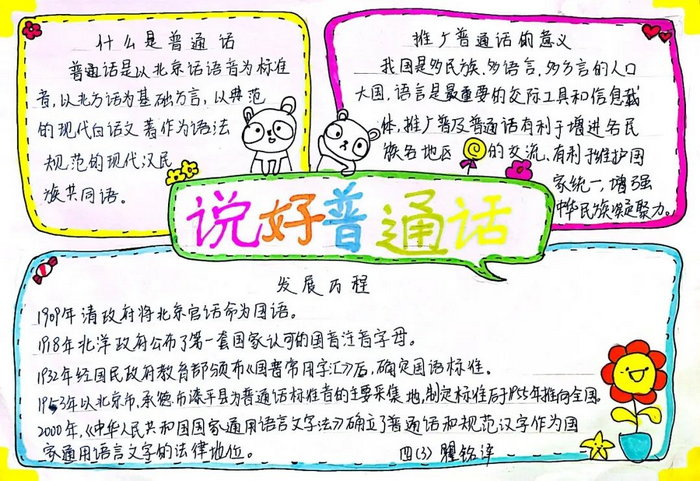 什么是普通话
普通话是以北京话语音为标准
音,以北方话为基础方言,以典范
的现代白话文著作为语法
规范的现代汉民
族共同语。
推广普通话的意义
我国是多民族、多语言、多方言的人口
大国,语言是最重要的交际工具和信息载
体,推广普及普通话有利于增进各民
族各地区的交流,有利于维护国
家统一,增强
中华民族凝聚力。
说好普通话
发展历程
1909年清政府将北京官话命为国语。
1918年北洋政府公布了第一套国家认可的国音注音字母。
1932年经国民政府教育部颁布《国音常用字汇》后,确定国语标准。
1953年以北京市,承德市滦平县为普通话标准音的主要采集地,制定标准后于1955年推向全国。
2000年,《中华人民共和国国家通用语言文字法》确立了普通话和规范汉字作为国
家通用语言文字的法律地位。
四(3)